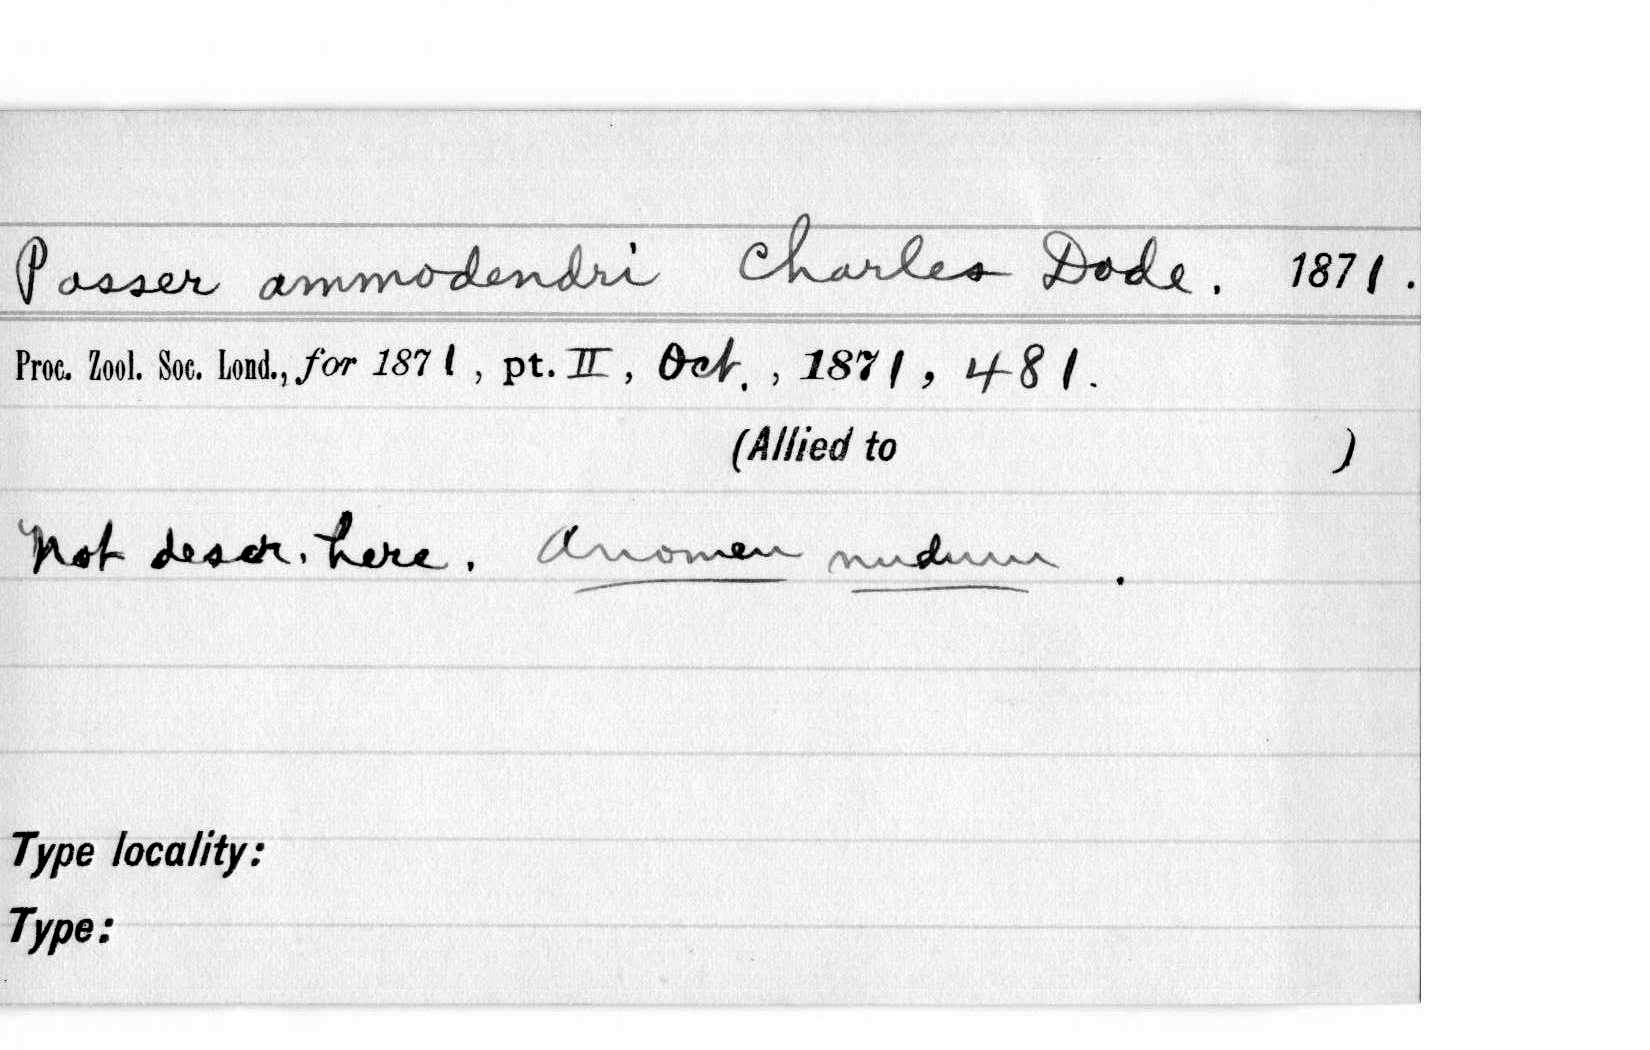 Passer ammodendri Charles Dode. 1871.
Proc. Zool. Soc. Lond., for 1871, pt. II, Oct., 1871, 481.
(Allied to )
Not descr. here. A nomen nudum.
Type locality:
Type: